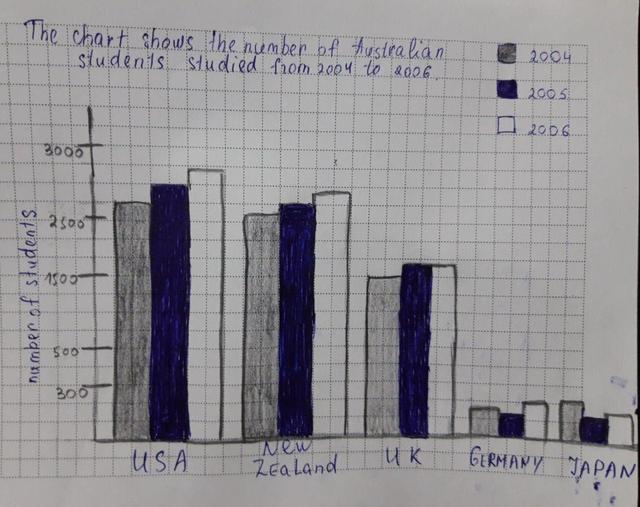 The chart shows the number of Australian
students studied from 2004 to 2006.
2004
2005
2006
number of students
3000
2500
1500
500
300
USA
New
Zealand
UK
GERMANY
JAPAN